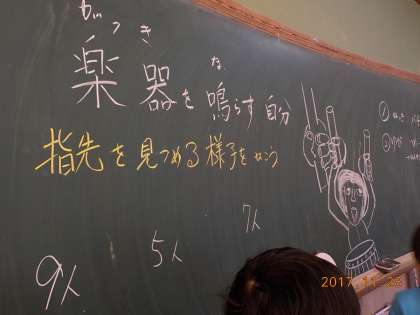 がっき な
楽器を鳴らす自分
指先を見つめる様子をかこう
9人
5人
7人
2017 11